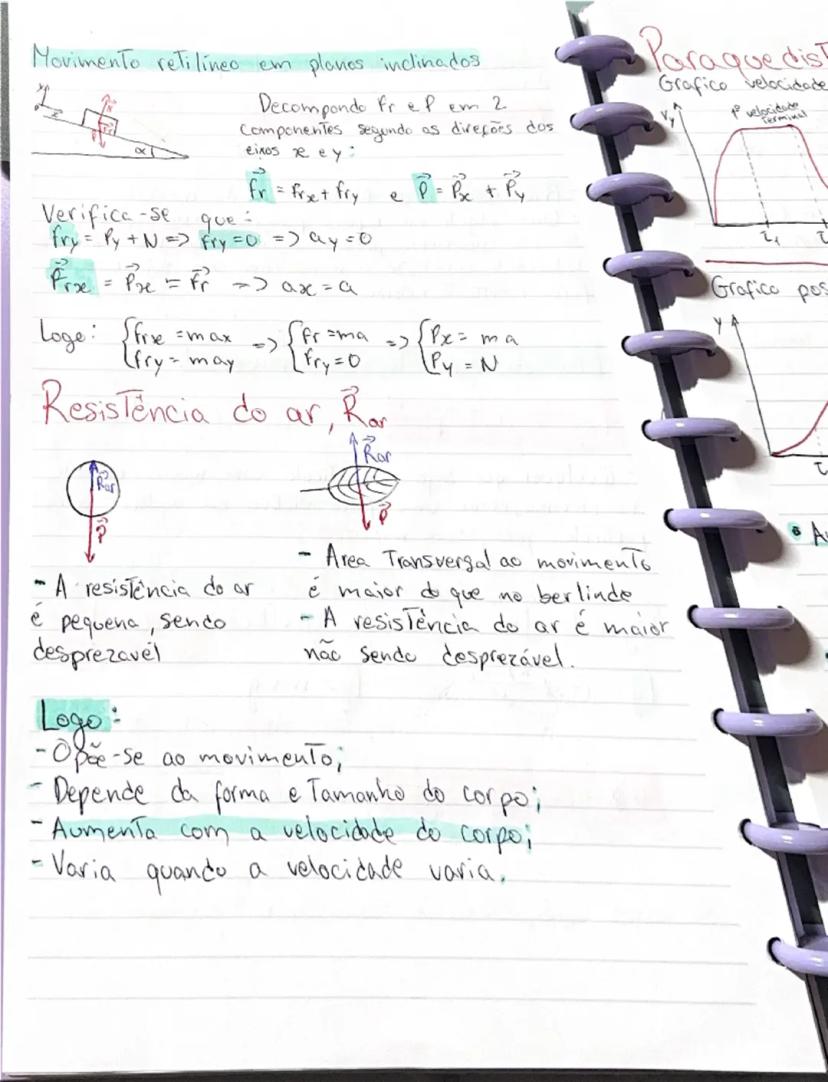 Movimento retilíneo em planos inclinados
y
x
N
Fr
α
Decompondo Fr e P em 2
componentes segundo as direções dos
eixos x e y:
Fr = Frx + fry e P = Px + Py
Verifica-se que:
fry = Py + N => fry = 0 => ay = 0
Frx = Px = Fr => ax = a
Logo: {frx = max => {fr = ma => {Px = ma
{fry = may {Fry = 0 {Py = N
Resistência do ar, Rar
Rar
P
Rar
P
- A resistência do ar
é pequena, sendo
desprezavél
- Area Transversal ao movimento
é maior do que no berlinde
- A resistência do ar é maior
não sendo desprezável.
Logo:
- Opõe-se ao movimento;
- Depende da forma e Tamanho do corpo;
- Aumenta com a velocidade do corpo;
- Varia quando a velocidade varia.
Paraquedist
Grafico velocidade
Vy
1ª velocidade
Terminal
t1
Grafico pos
y